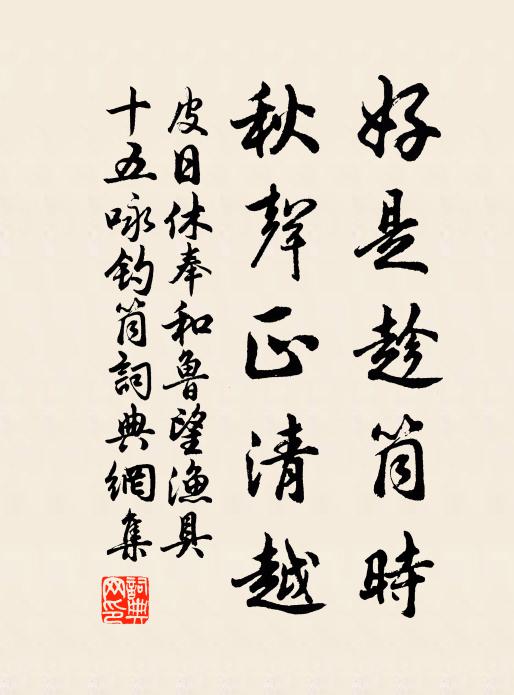 好是趁筒時
秋聲正清越
皮日休奉和魯望漁具
十五咏釣筒詞典網集
詞典網印